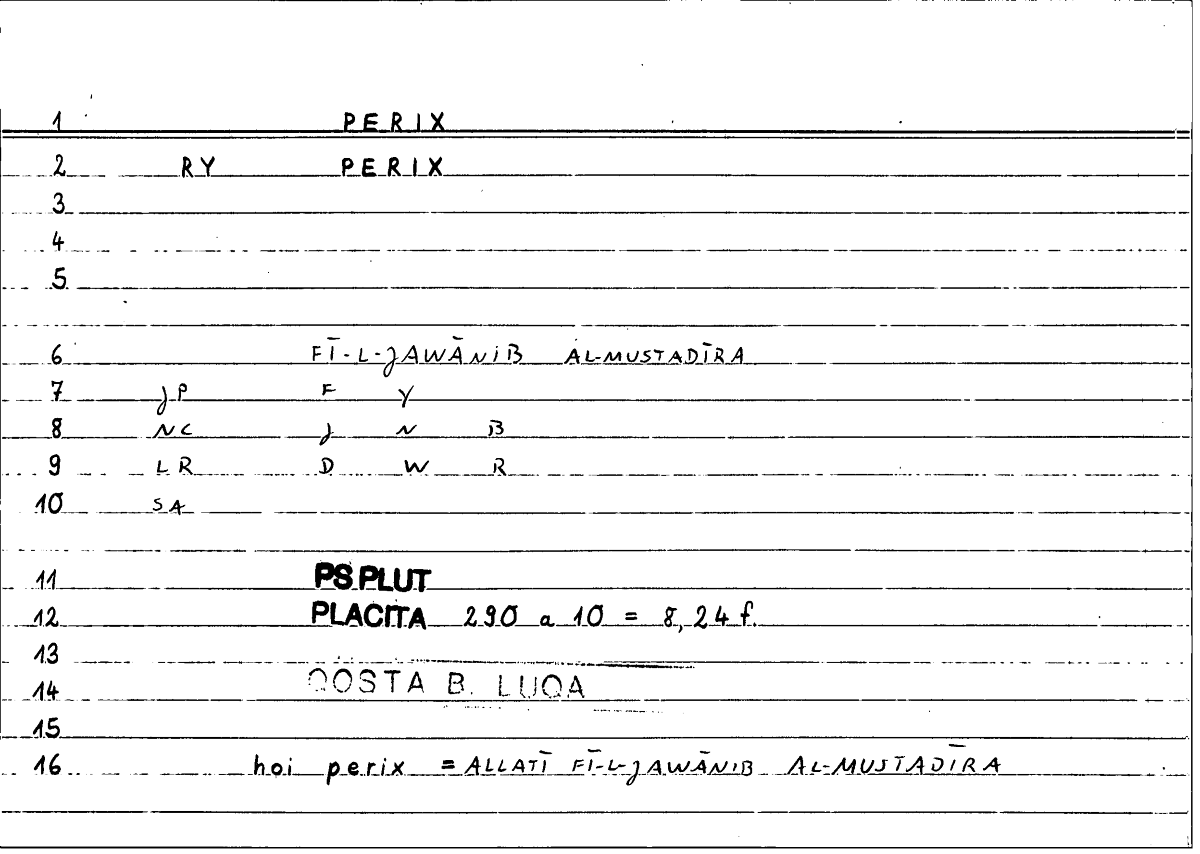 1 PERIX
2 RY PERIX
3
4
5
6 FĪ-L-JAWĀNIB AL-MUSTADĪRA
7 JP F Y
8 NC J N B
9 LR D W R
10 SA
11 PS.PLUT
12 PLACITA 290 a 10 = 8,24 f.
13
14 QOSTA B. LUQA
15
16 hoi perix = ALLATĪ FĪ-L-JAWĀNIB AL-MUSTADĪRA